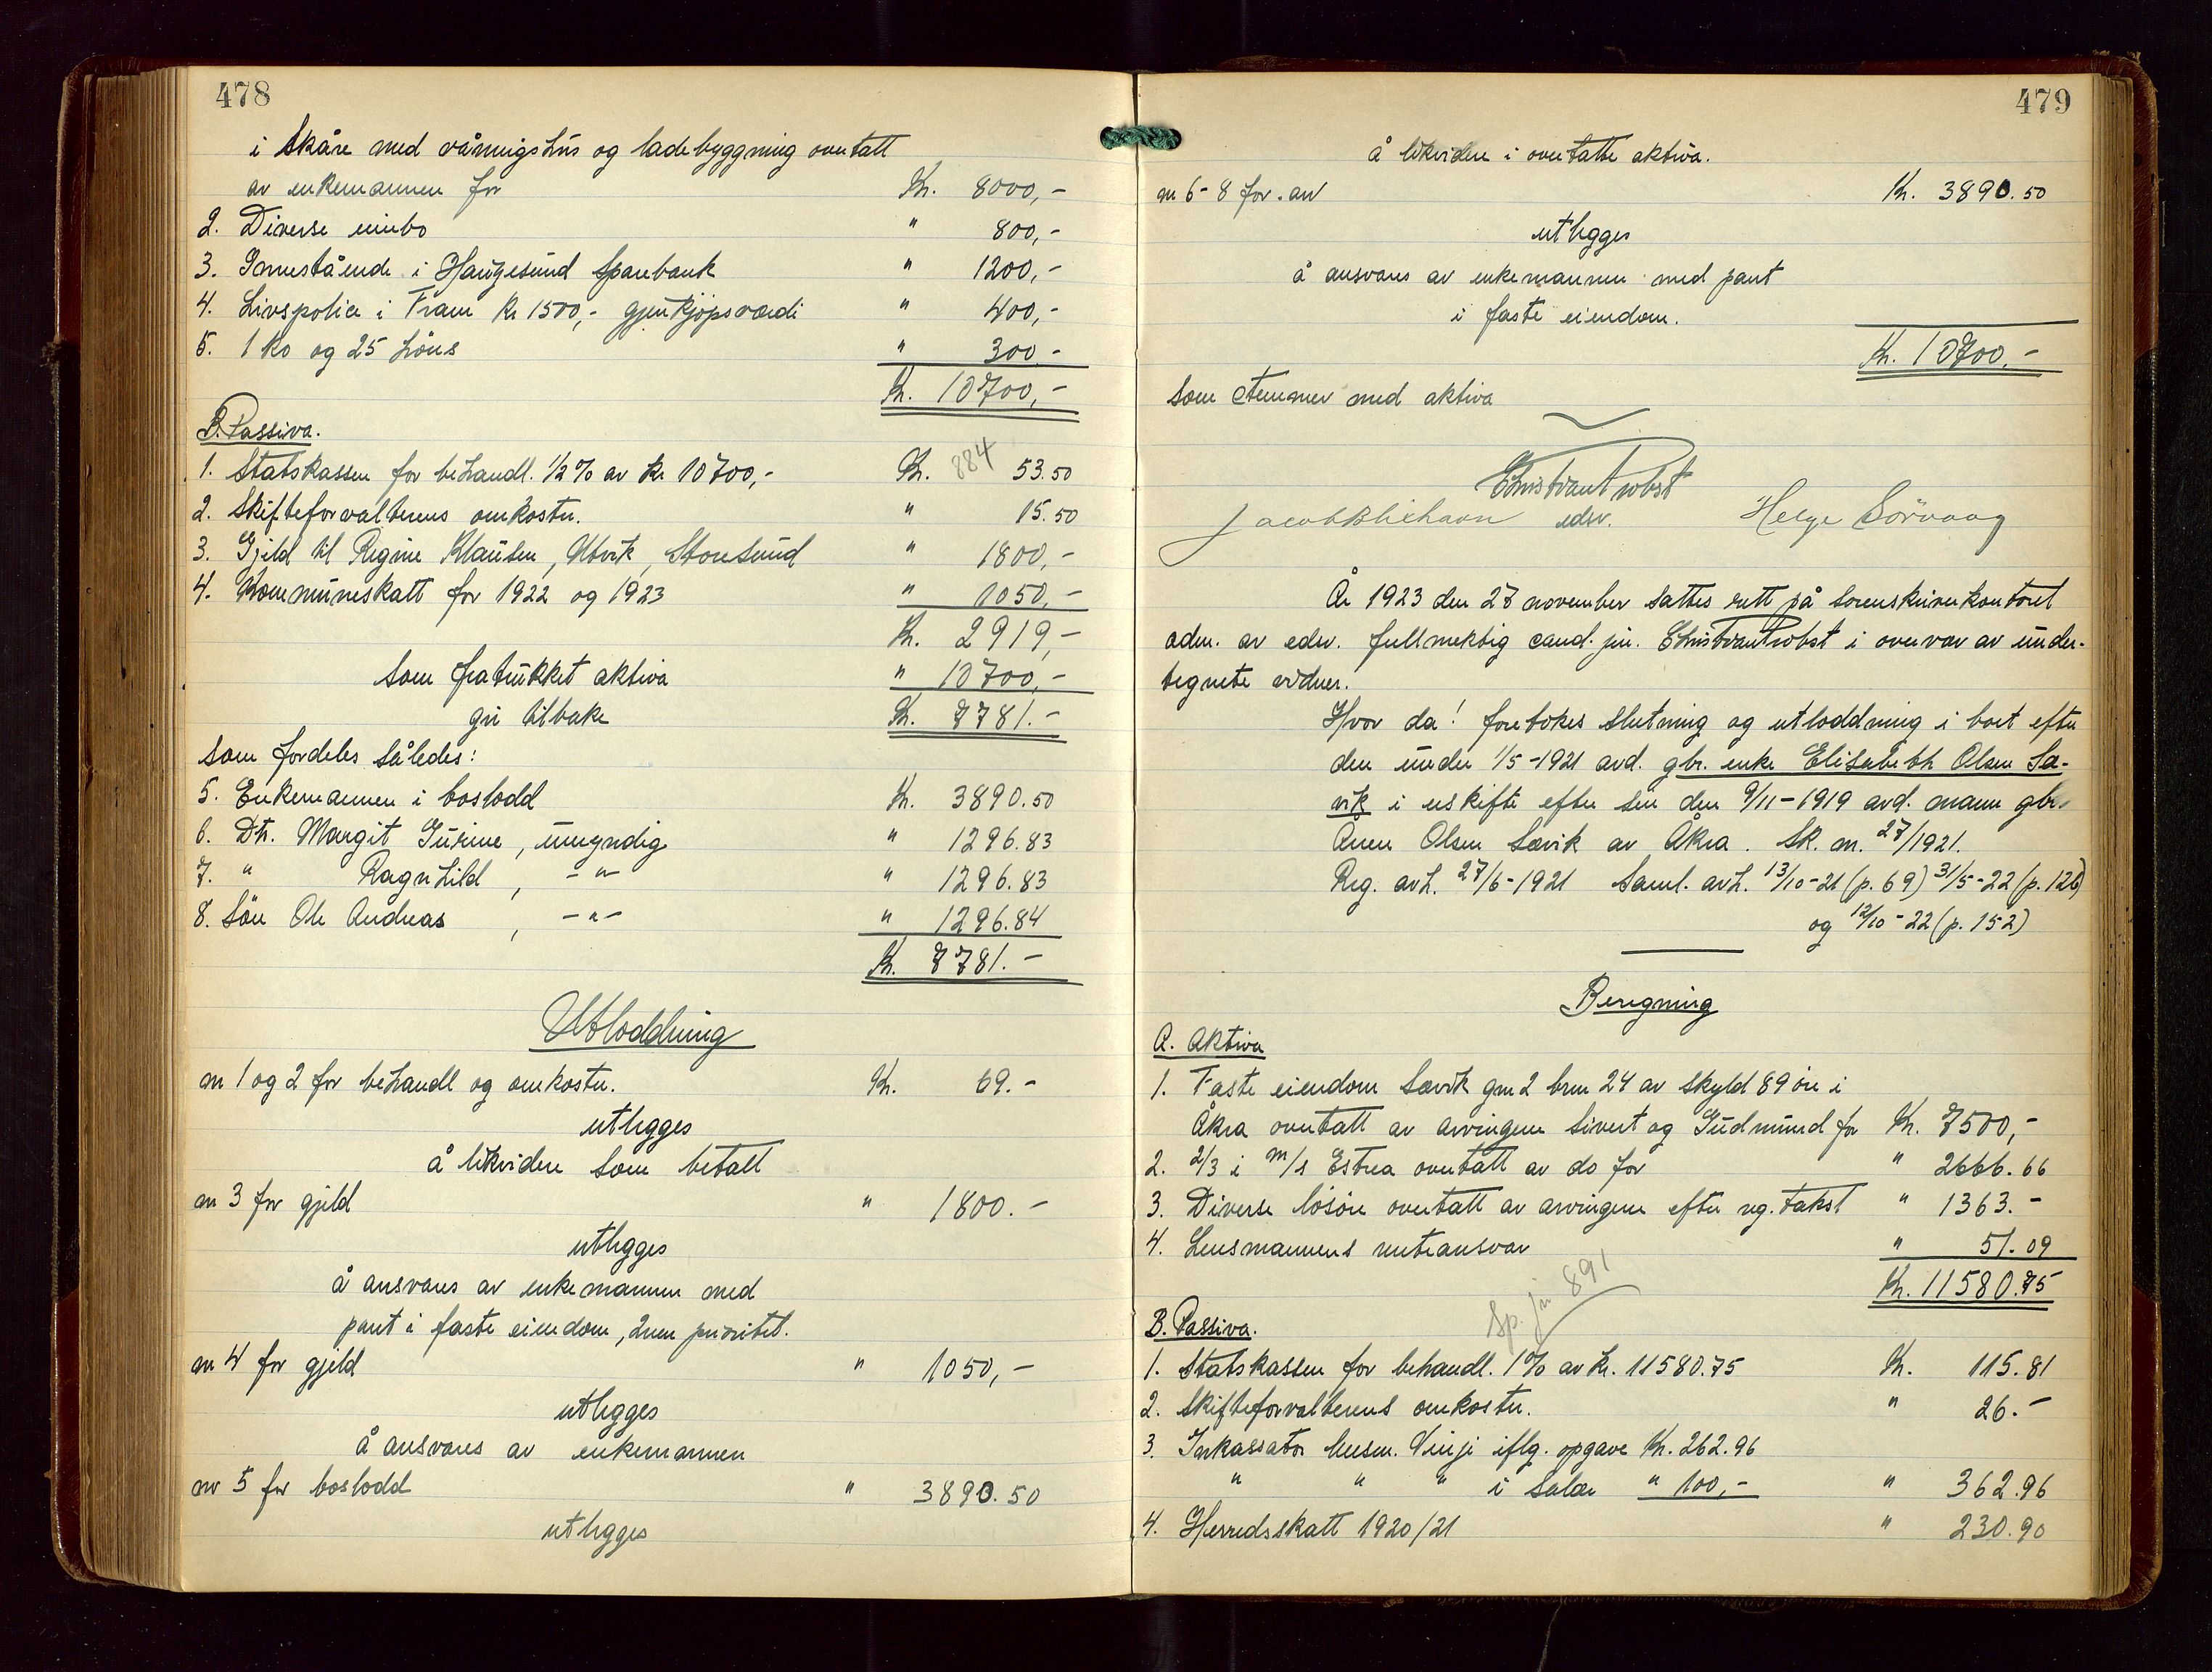 478
i Skåre med våningshus og ladebyggning overtatt
av enkemannen for Kr. 8000,-
2. Diverse innbo " 800,-
3. Innestående i Haugesund Sparebank " 1200,-
4. Livspolice i Fram kr 1500,- gjenkjöpsværdi " 400,-
5. 1 ko og 25 höns " 300,-
Kr. 10700,-
B. Passiva.
1. Statskassen for behandl. 1/2 % av kr 10700,- Kr. 884 53.50
2. Skifteforvalterens omkostn. " 15.50
3. Gjeld til Regine Klausen, Utvik, Storesund " 1800,-
4. Kommuneskatt for 1922 og 1923 " 1050,-
Kr. 2919,-
som fratrukket aktiva " 10700,-
gir tilbake Kr. 7781.-
som fordeles således:
5. Enkemannen i boslodd Kr. 3890.50
6. Dtr. Margit Gurine, umyndig " 1296.83
7. " Ragnhild, -"- " 1296.83
8. Sön Ole Andreas, -"- " 1296.84
Kr. 7781.-
Utloddning
nr 1 og 2 for behandl og omkostn. Kr. 69.-
utlegges
å likvidere som betalt
nr 3 for gjeld " 1800.-
utlegges
å ansvares av enkemannen med
pant i faste eiendom, 2nen prioritet.
nr 4 for gjeld " 1050,-
utlegges
å ansvares av enkemannen
nr 5 for boslodd " 3890.50
utlegges
479
å likvidere i overtatte aktiva.
nr 6-8 for arv Kr. 3890.50
utlegges
å ansvares av enkemannen med pant
i faste eiendom.
Kr. 10700,-
som stemmer med aktiva
Chr. Trant
edsv. Helge Sörvaag
År 1923 den 27 november sattes rett på sorenskriverkontoret
adm. av edsv. fullmektig cand. jur. Chr. Trant i overvær av under-
tegnete vidner.
Hvor da! foretokes slutning og utloddning i boet efter
den under 1/5-1921 avd. gbr. enke Elisabeth Olsen Sæ-
vik i uskifte efter sin den 9/11-1919 avd. mann gbr.
Ånen Olsen Sævik av Åkra. Sk. nr. 27/1921.
Reg. avh. 27/6-1921 Saml. avh. 13/10-21 (p. 69) 31/5-22 (p. 126)
og 12/10-22 (p. 152)
Beregning
A. Aktiva
1. Faste eiendom Sævik gnr 2 brnr 24 av skyld 89 öre i
Åkra overtatt av arvingene Sivert og Gudmund for Kr. 7500,-
2. 2/3 i m/s Estrea overtatt av do for " 2666.66
3. Diverse lösöre overtatt av arvingene efter reg. takst " 1363.-
4. Lensmannens renteansvar " 51.09
Kr. 11580.75
Sp. jr 891
B. Passiva.
1. Statskassen for behandl. 1% av kr. 11580.75 Kr. 115.81
2. Skifteforvalterens omkostn. " 26.-
3. Inkassator lensm. Vinje iflg. opgave Kr. 262.96
" " " i salær " 100,- " 362.96
4. Herredsskatt 1920/21 " 230.90